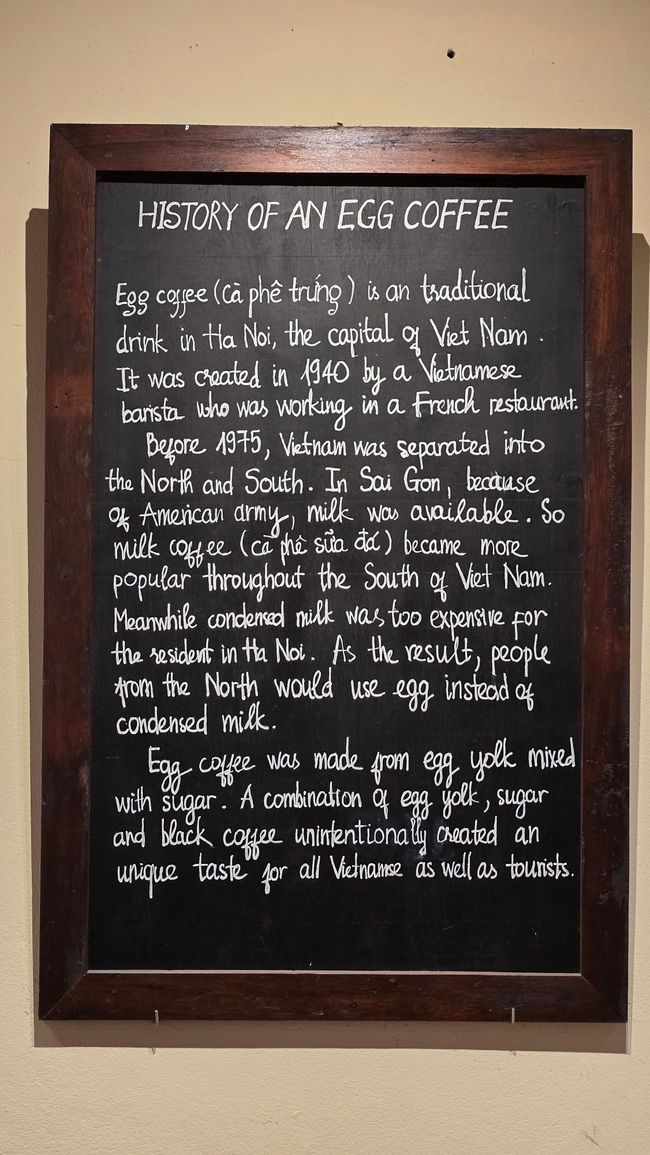 HISTORY OF AN EGG COFFEE
Egg coffee (cà phê trứng) is an traditional
drink in Ha Noi, the capital of Viet Nam.
It was created in 1940 by a Vietnamese
barista who was working in a French restaurant.
Before 1975, Vietnam was separated into
the North and South. In Sai Gon, because
of American army, milk was available. So
milk coffee (cà phê sữa đá) became more
popular throughout the South of Viet Nam.
Meanwhile condensed milk was too expensive for
the resident in Ha Noi. As the result, people
from the North would use egg instead of
condensed milk.
Egg coffee was made from egg yolk mixed
with sugar. A combination of egg yolk, sugar
and black coffee unintentionally created an
unique taste for all Vietnamse as well as tourists.